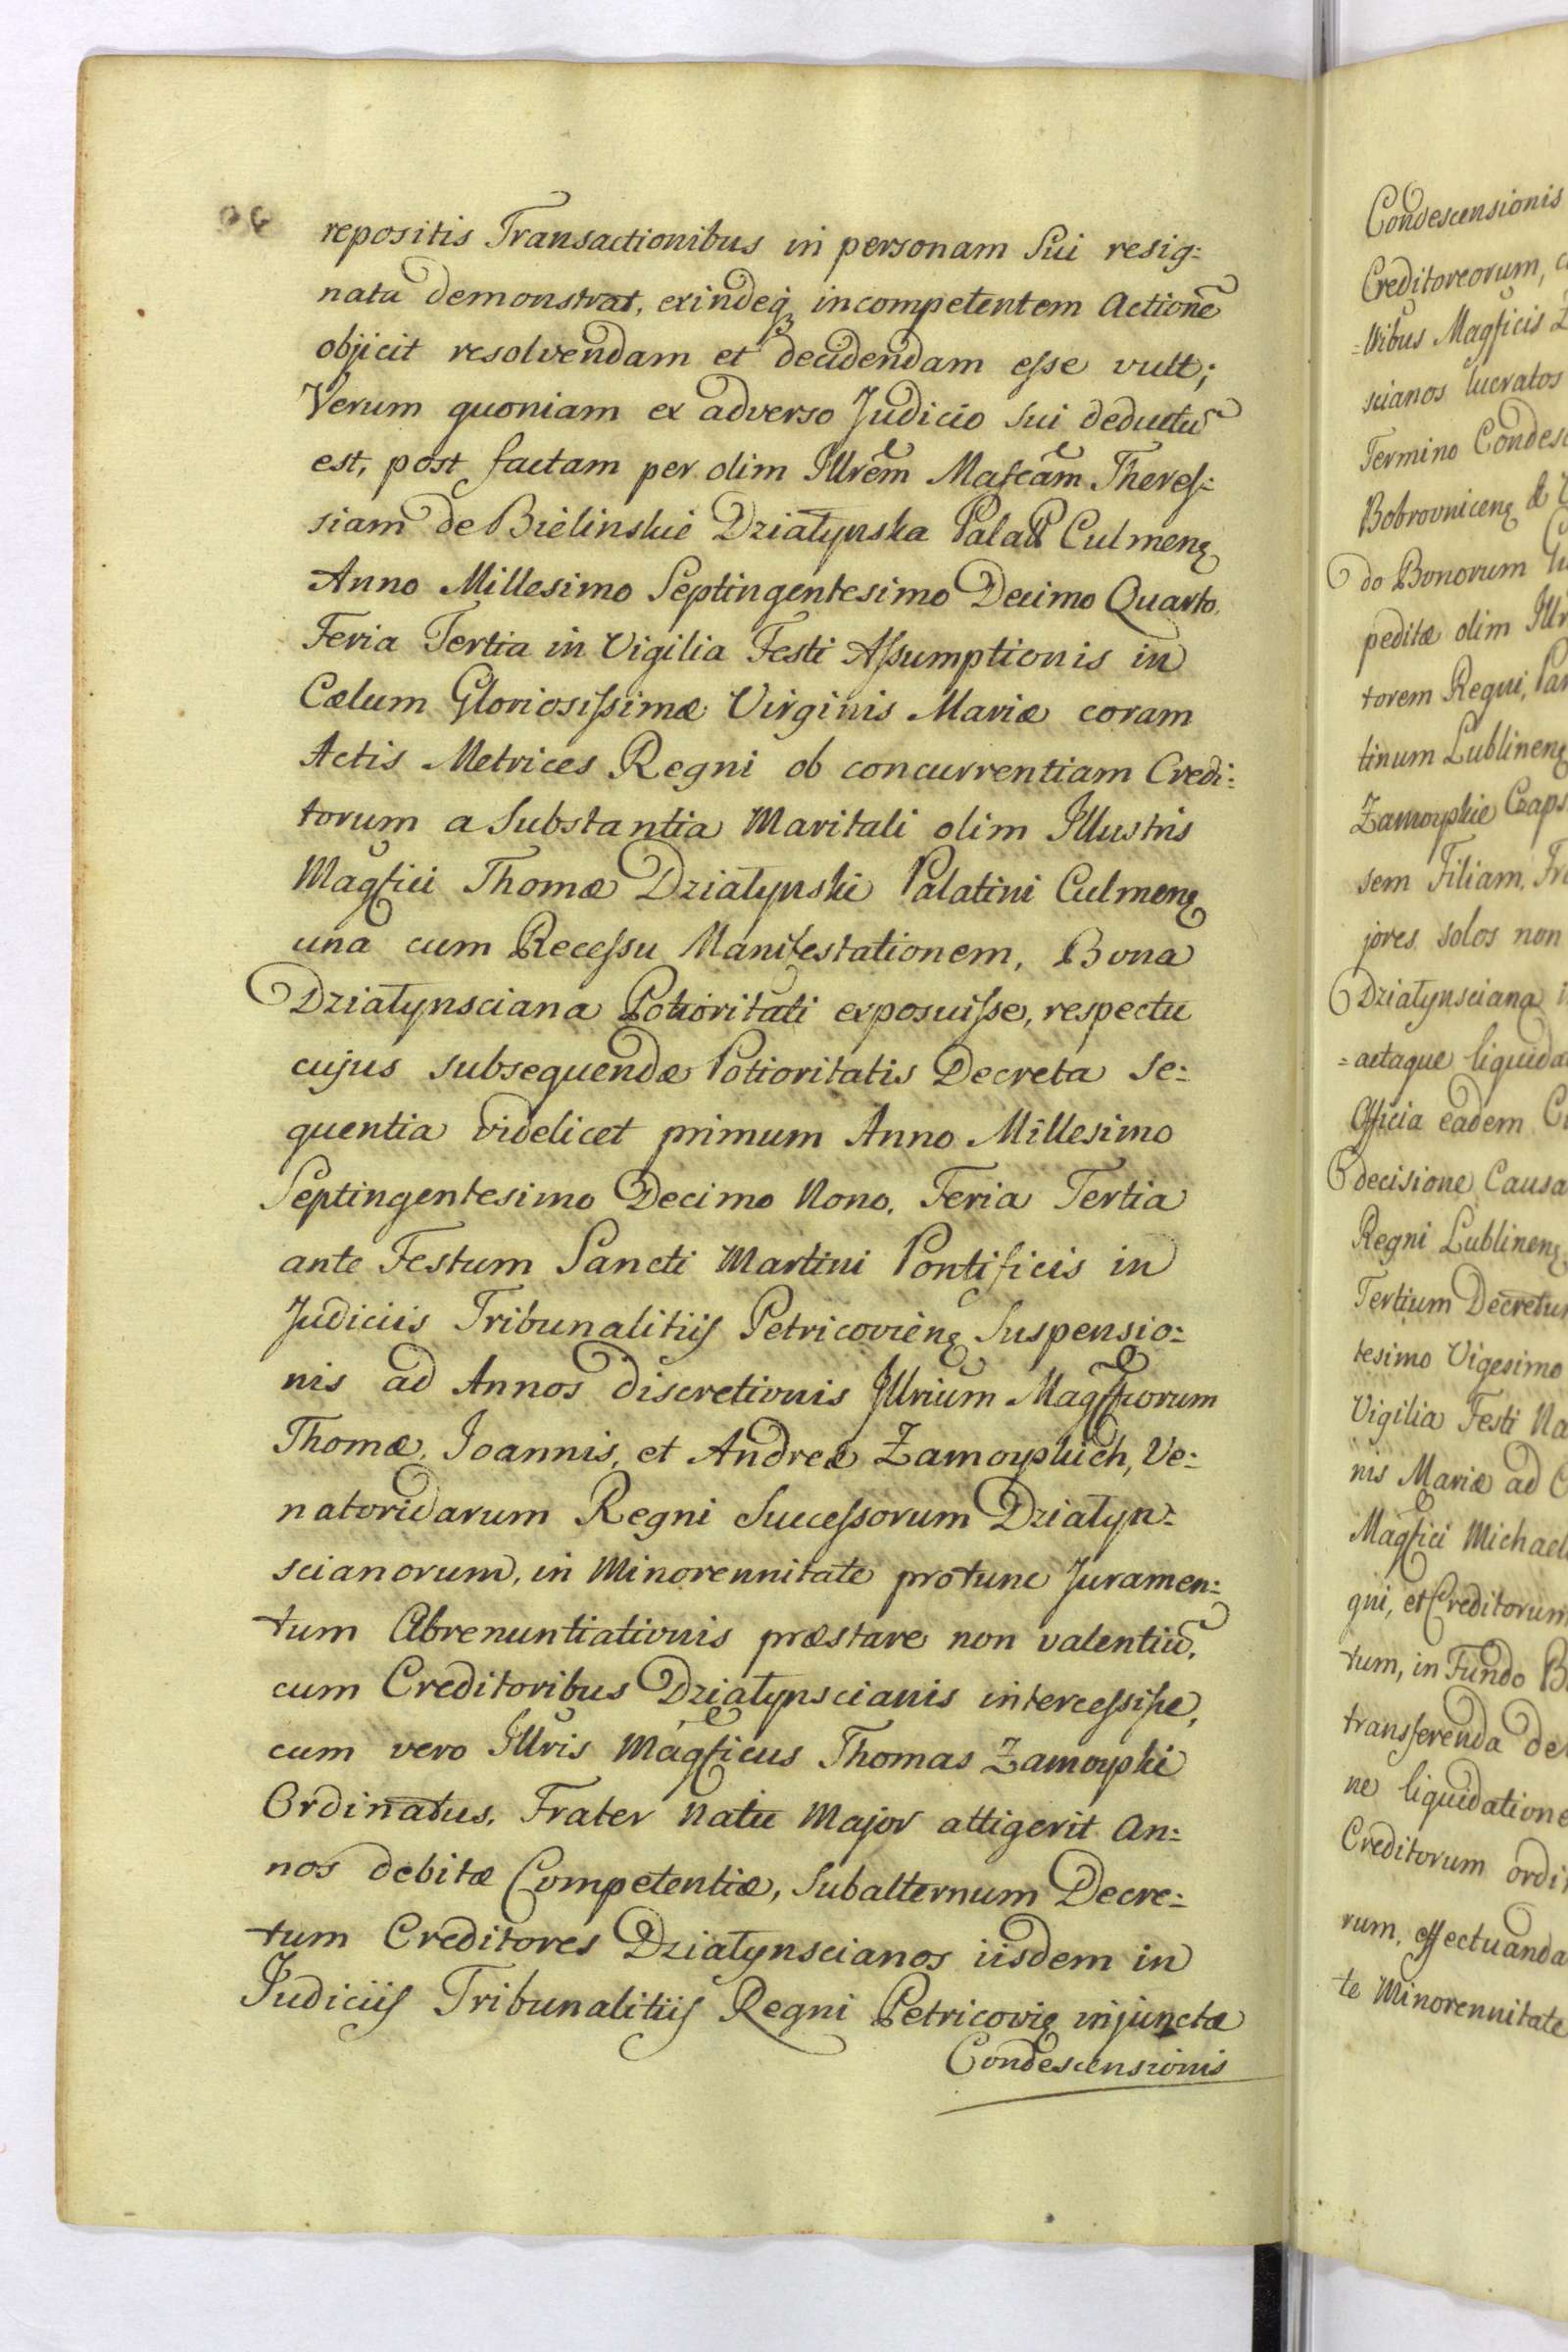 repositis Transactionibus in personam Sui resig:
nata demonstrat, exindeq₃ incompetentem Actionẽ
objicit resolvendam et decidendam eſse vult;
Verum quoniam ex adverso Judicio Sui deductũ
est, post factam per olim Illrem Magcam Thereſ:
siam de Bielinskie Działynska Palat Culmenꝫ
Anno Millesimo Septingentesimo Decimo Quarto.
Feria Tertia in Vigilia Festi Aſsumptionis in
Cælum Gloriosiſsimæ Virginis Mariæ coram
Actis Metrices Regni ob concurrentiam Credi:
torum a Substantia Maritali olim Illustris
Magfici Thomæ Działynski Palatini Culmenꝫ
una cum Receſsu Manifestationem, Bona
Działynsciana Potioritati exposuiſse, respectu
cujus subsequendæ Potioritatis Decreta Se:
quentia videlicet primum Anno Millesimo
Septingentesimo Decimo Nono. Feria Tertia
ante Festum Sancti Martini Pontificis in
Judiciis Tribunalitiiſ Petricovienꝫ Suspensio:
nis ad Annos discretionis Illrium Magficorum
Thomæ, Joannis, et Andreæ Zamoyskich, Ve:
natoridarum Regni Succeſsorum Działyn:
scianorum, in Minorennitate protunc Juramen:
tum Abrenuntiationis præstare non valentiũ,
cum Creditoribus Działynscianis interceſsiſse,
cum vero Illris Magficus Thomas Zamoyski
Ordinatus. Frater Natu Major attigerit An:
nos debitæ Competentiæ, Subalternum Decre:
tum Creditores Działynscianos iisdem in
Judiciiſ Tribunalitiiſ Regni Petricovię injunctæ
Condescensionis
Condescensionis
Creditoreorum,
:llribus Magficis
scianos lucratos
Termino
Bobrovnicenꝫ &
do Bonorum
peditæ olim
torem Regni,
tinum Lublinenꝫ
Zamoyskie
sem Filiam,
jores solos non
Działynsciana
=actaque
Officia eadem
decisione Causa
Regni Lublinenꝫ
Tertium
tesimo Vigesimo
Vigilia Festi
nis Mariæ ad
Magfici
qni, et Creditorum
tum, in Fundo
transferenda
ne
Creditorum
rum, effectuanda
te Minorennitate